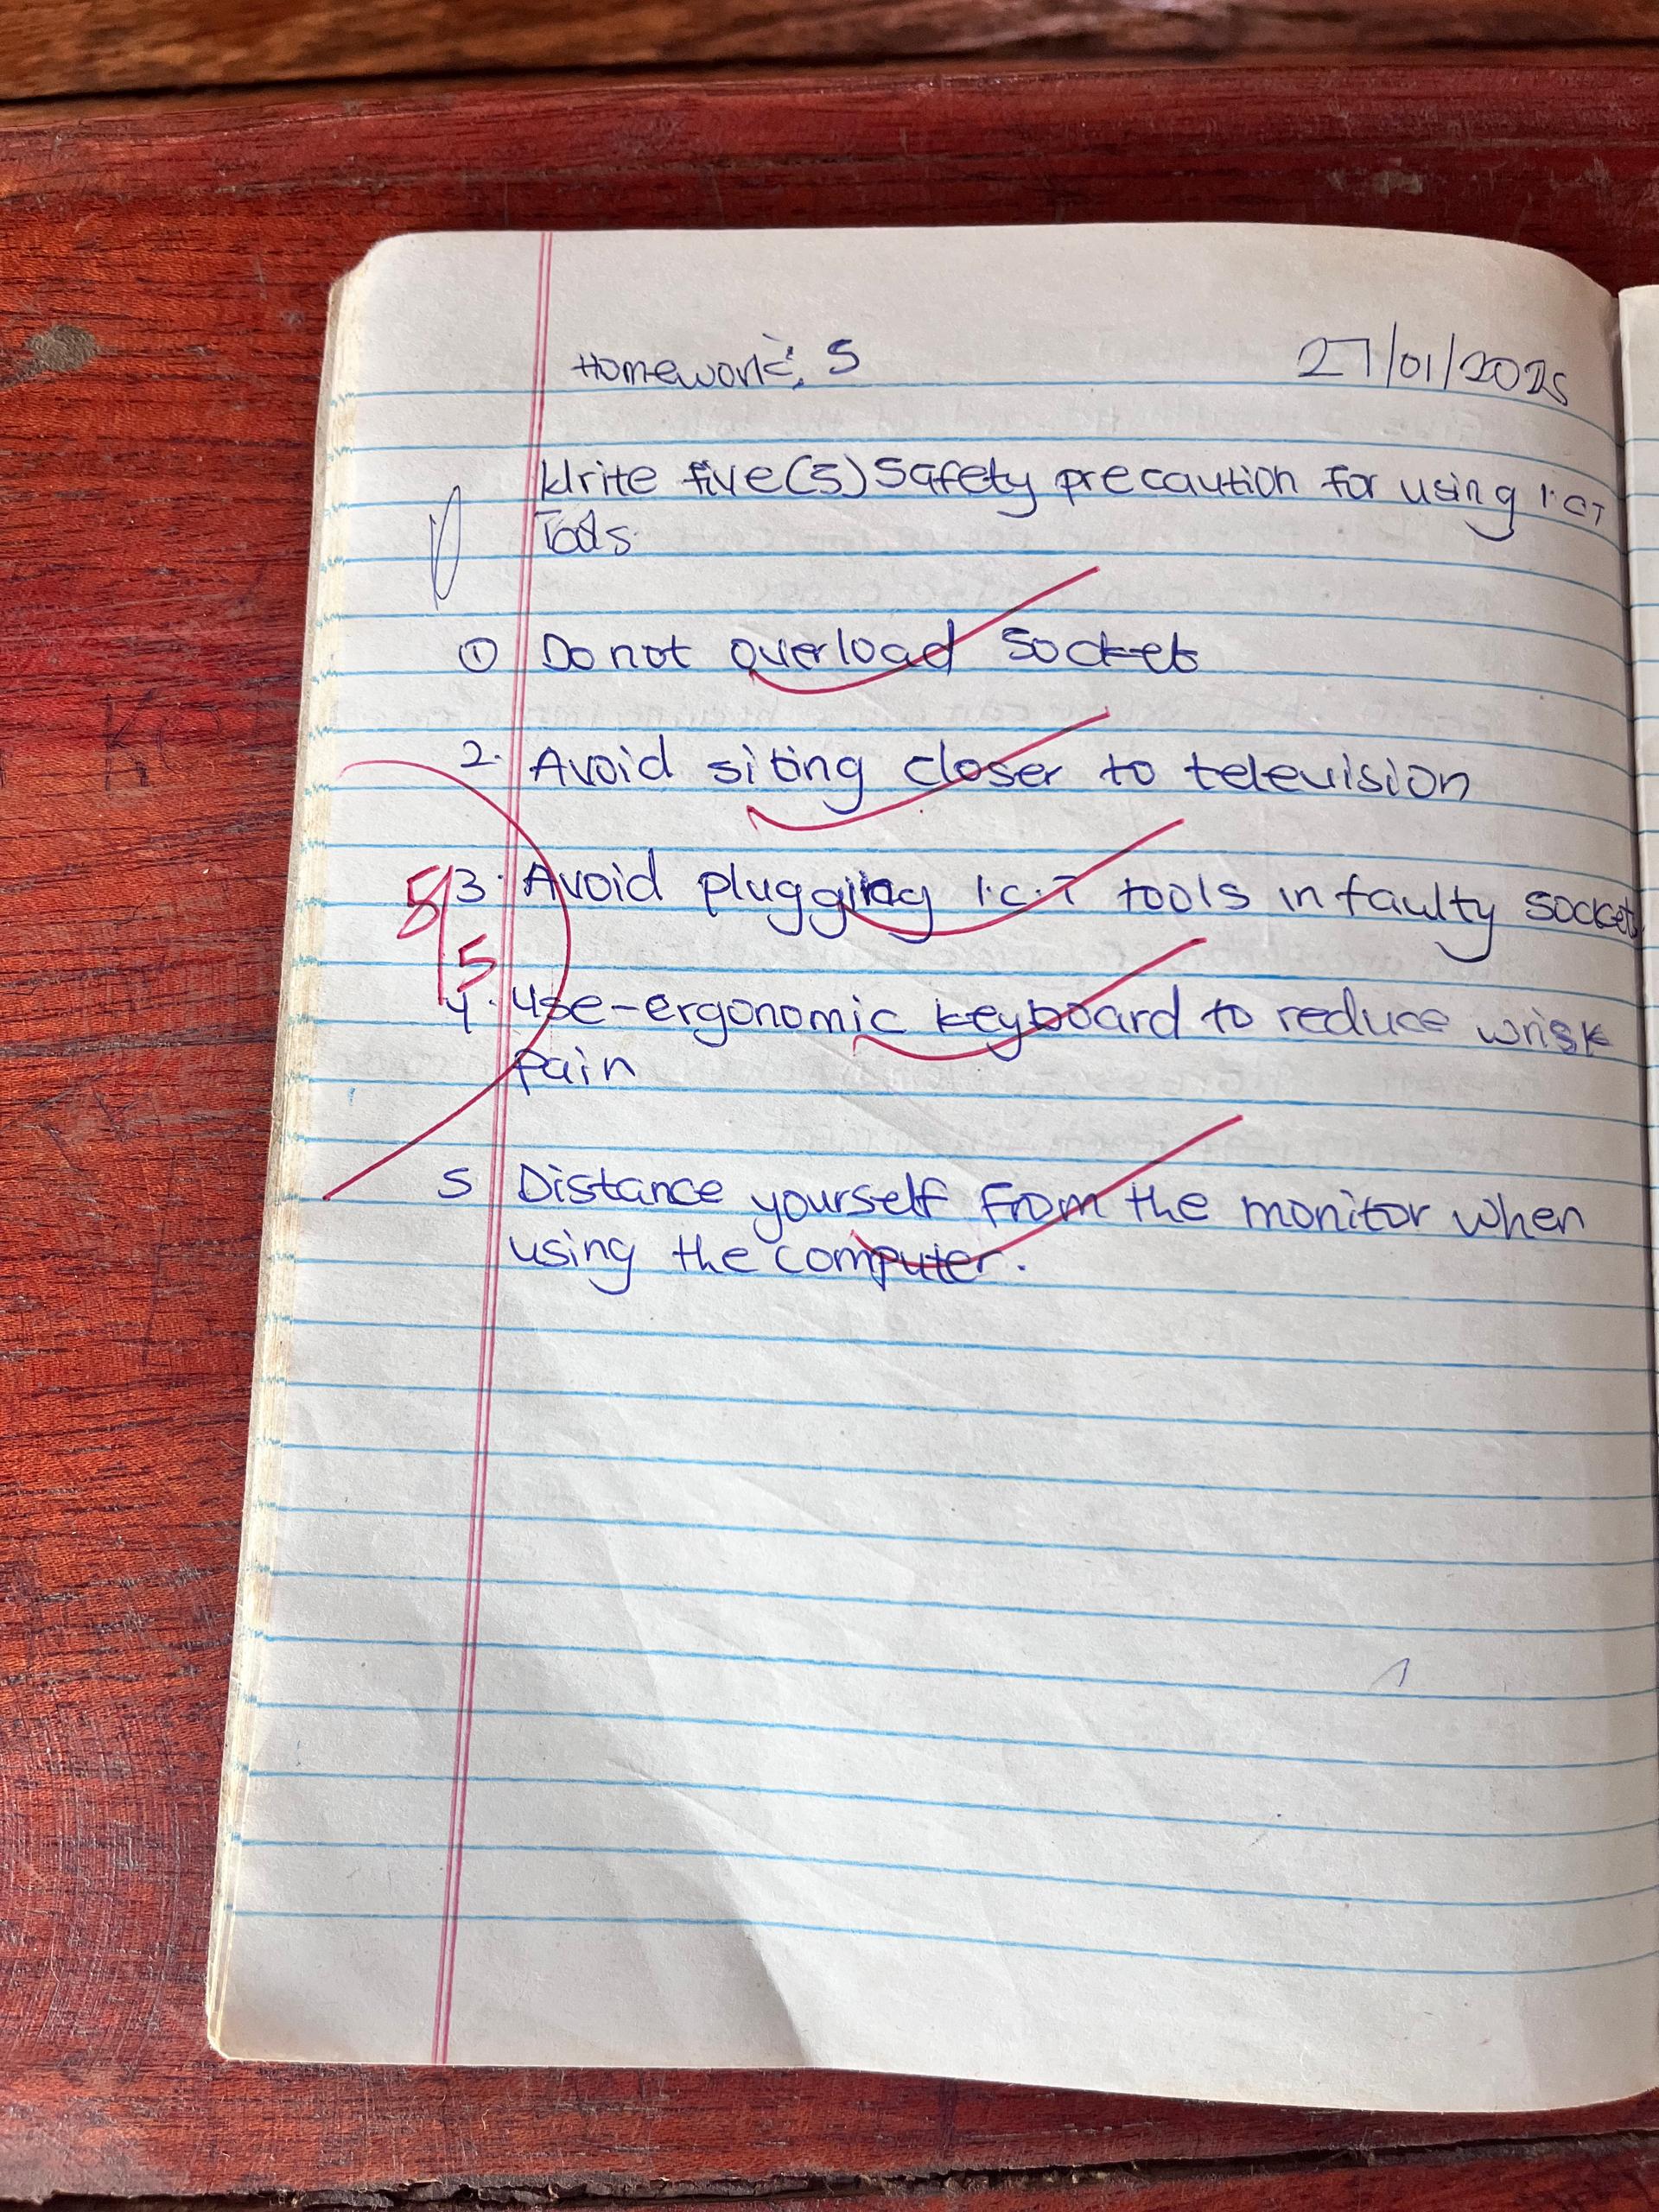 Homework: 5 27/01/2025
Write five(5) safety precaution for using I.CT
Tools.
① Do not overload sockets
2. Avoid siting closer to television
3. Avoid plugging I.C.T tools in faulty socket
5/5
4. Use-ergonomic keyboard to reduce wrisk
pain
5 Distance yourself from the monitor when
using the computer.